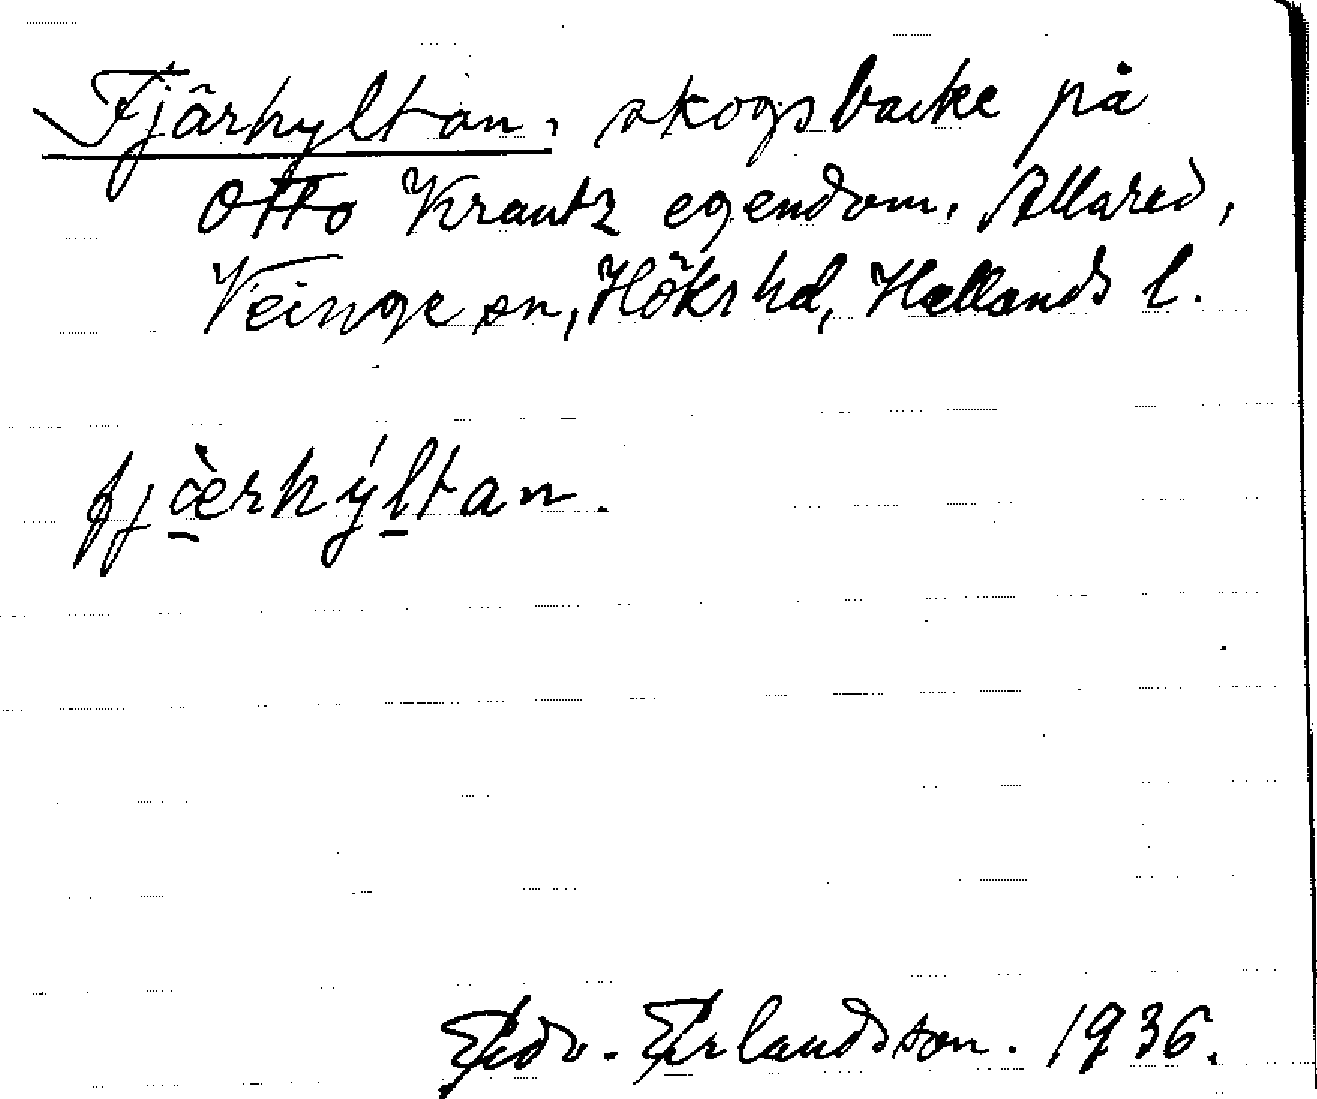 Fjärhyltan, skogsbacke på
Otto Krantz egendom, Allared,
Veinge sn, Höks hd, Hallands l.
fjærhyltan.
Edv. Erlandsson. 1936.